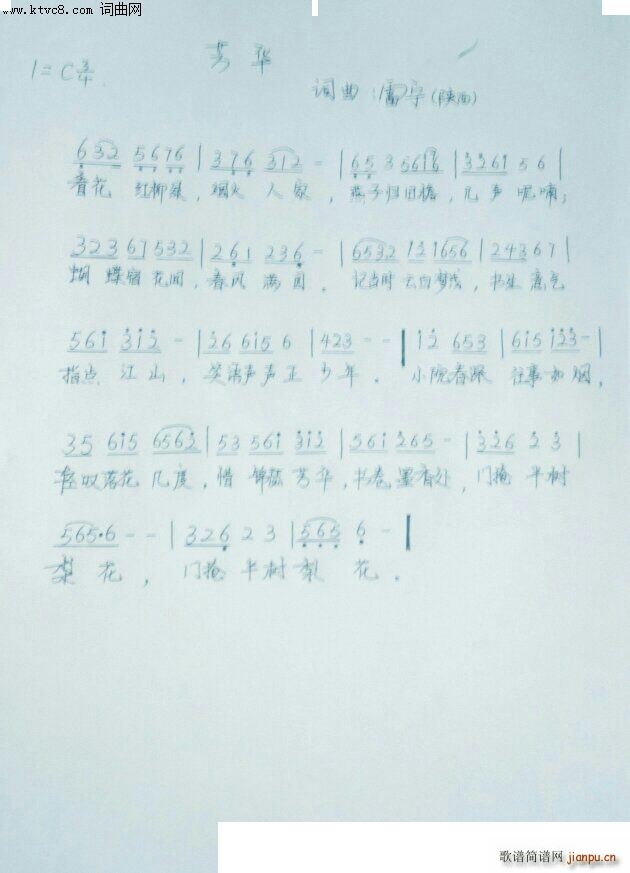 www.ktvc8.com 词曲网
芳华
1=C 3/4
词曲：雷宇(陕西)
632 5676 | 376 312 - | 655 35616 | 3261 5 6 |
杏花 红柳绿，烟火 人家，燕子归旧檐，几声 呢喃；
323 67 532 | 261 236 - | 6532 121656 | 243 67 |
蝴 蝶宿花间，春风 满园。记当时 云白，书生 意气
561 312 - | 26 615 6 | 423 - - | 12 653 | 615 123 - |
指点 江山，笑语声声正 少年。小院春深 往事如烟，
35 615 6562 | 53 561 312 | 561 265 - | 326 2 3 |
轻叹落花 几度，惜 锦瑟 芳华，书卷墨香处，门掩 半树
565·6 - - | 326 2 3 | 565 6 - |
梨 花，门掩 半树 梨 花。
歌谱简谱网 jianpu.cn